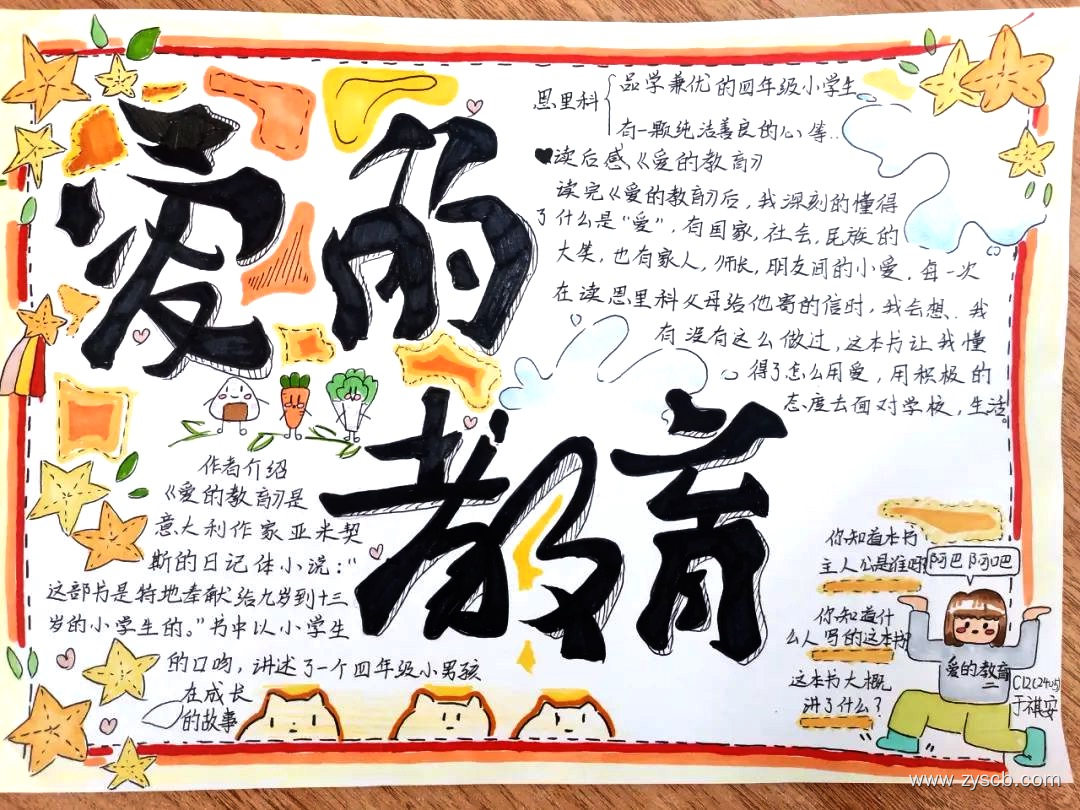 爱的
教育
思里科
品学兼优的四年级小学生
有一颗纯洁善良的心等..
读后感《爱的教育》
读完《爱的教育》后，我深刻的懂得
了什么是“爱”，有国家，社会，民族的
大爱，也有家人，师长，朋友间的小爱．每一次
在读思里科父母给他寄的信时，我会想．．我
有没有这么做过，这本书让我懂
得了怎么用爱，用积极的
态度去面对学校，生活
作者介绍
《爱的教育》是
意大利作家亚米契
斯的日记体小说：“
这部书是特地奉献给九岁到十三
岁的小学生的。”书中以小学生
的口吻，讲述了一个四年级小男孩
在成长
的故事
你知道本书
主人公是谁呀
阿巴阿巴
你知道什
么人写的这本书
这本书大概
讲了什么？
爱的教育
C12(2405)
于祺安
www.zyscb.com